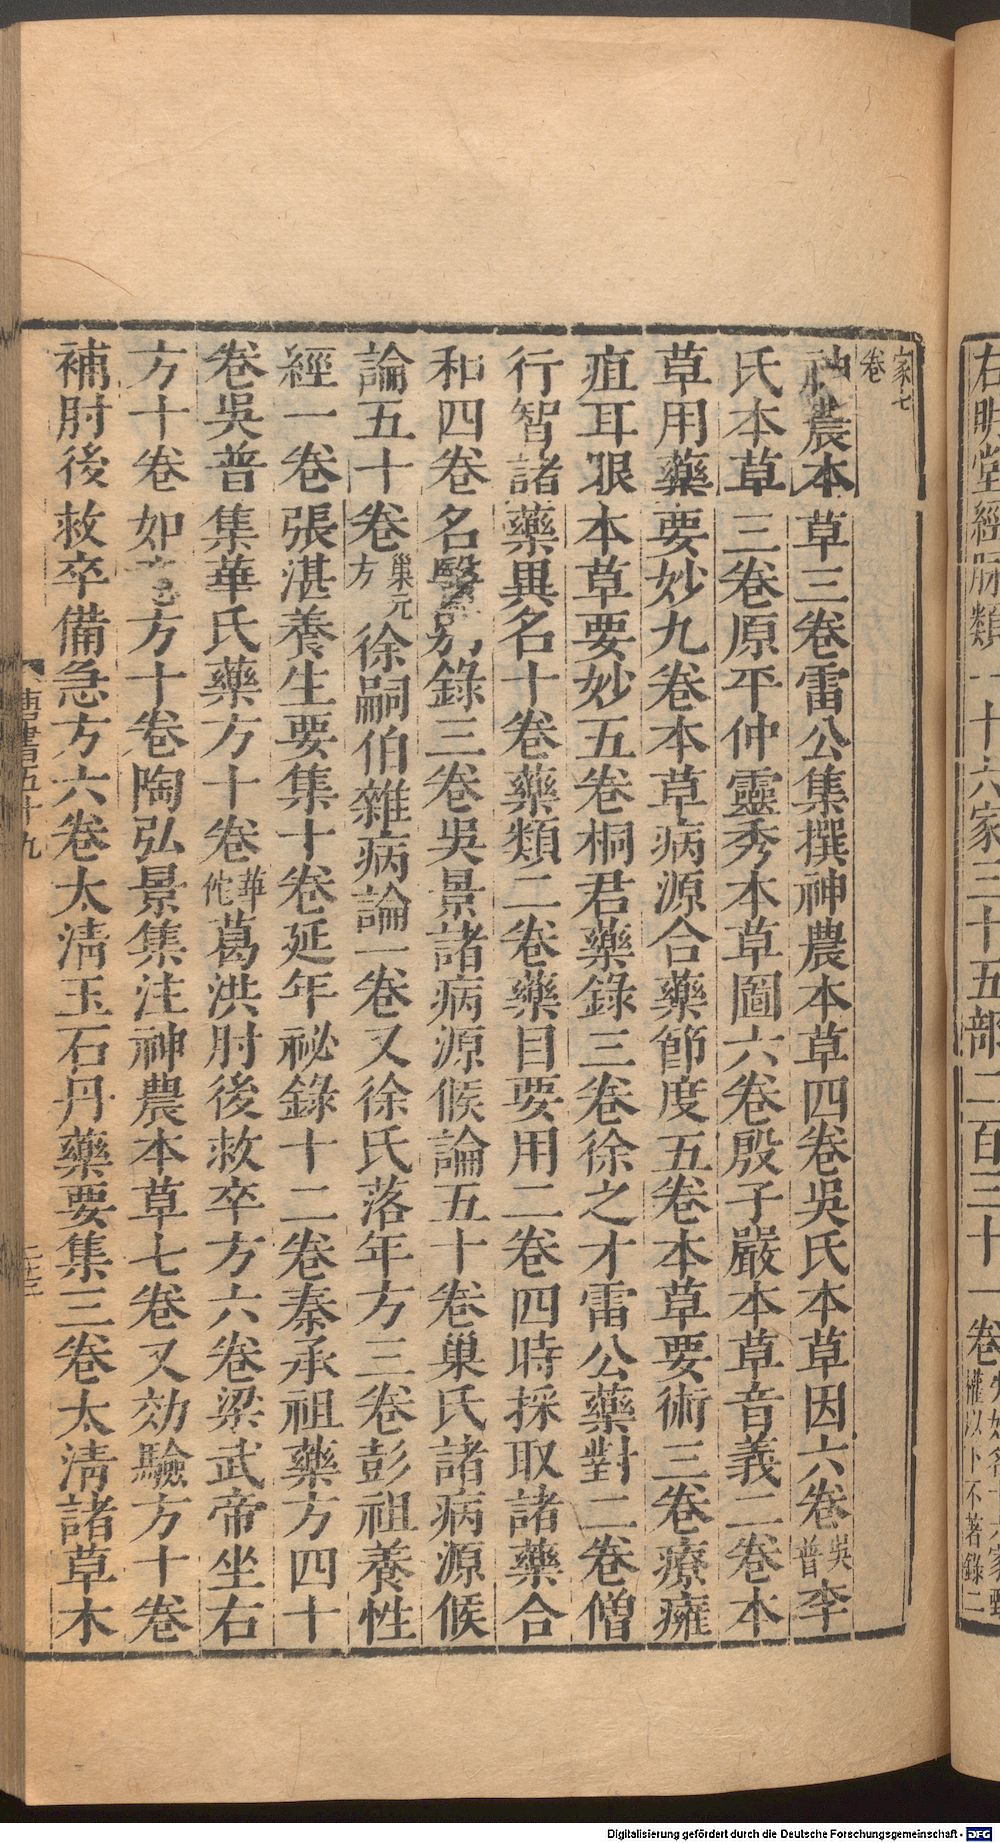 右明堂經脉類一十六家三十五部二百三十一卷
權以下不著錄二
家七
卷
神農本草三卷雷公集撰神農本草四卷吳氏本草因六卷吳普李
氏本草三卷原平仲靈秀本草圖六卷殷子嚴本草音義二卷本
草用藥要妙九卷本草病源合藥節度五卷本草要術三卷療癰
疽耳眼本草要妙五卷桐君藥錄三卷徐之才雷公藥對二卷僧
行智諸藥異名十卷藥類二卷藥目要用二卷四時採取諸藥合
和四卷名醫別錄三卷吳景諸病源候論五十卷巢氏諸病源候
論五十卷巢元方徐嗣伯雜病論一卷又徐氏落年方三卷彭祖養性
經一卷張湛養生要集十卷延年祕錄十二卷秦承祖藥方四十
卷吳普集華氏藥方十卷華佗葛洪肘後救卒方六卷梁武帝坐右
方十卷如意方十卷陶弘景集注神農本草七卷又效驗方十卷
補肘後救卒備急方六卷太清玉石丹藥要集三卷太清諸草木
唐書五十九
Digitalisierung gefördert durch die Deutsche Forschungsgemeinschaft - DFG